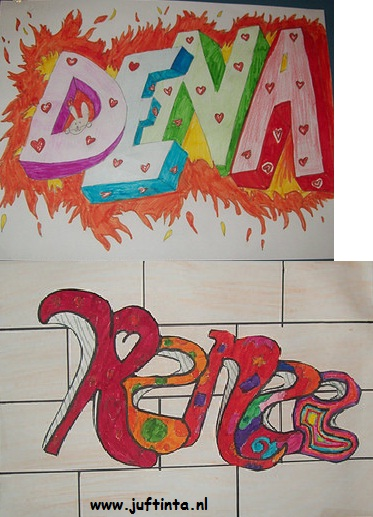 DENA
Renee
www.juftinta.nl